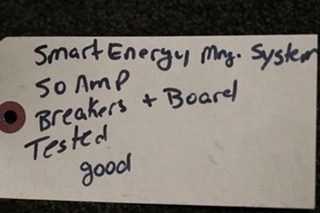 Smart Energy Mng. System
50 Amp
Breakers + Board
Tested
good